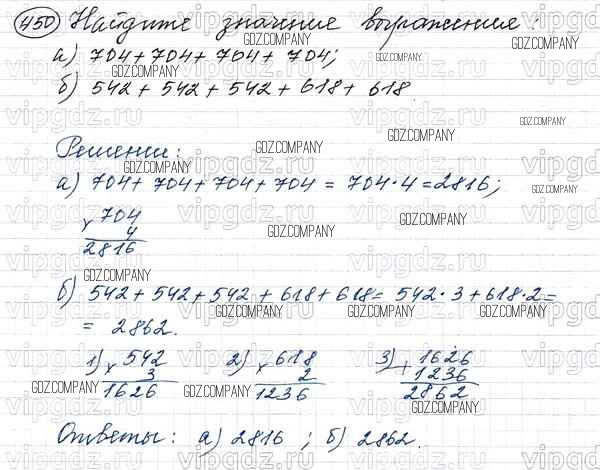 450 Найдите значение выражения:
а) 704 + 704 + 704 + 704;
б) 542 + 542 + 542 + 618 + 618
Решение:
а) 704 + 704 + 704 + 704 = 704 · 4 = 2816;
× 704
4
2816
б) 542 + 542 + 542 + 618 + 618 = 542 · 3 + 618 · 2 =
= 2862.
1) × 542 2) × 618 3) + 1626
3 2 1236
1626 1236 2862
Ответы: а) 2816 ; б) 2862.